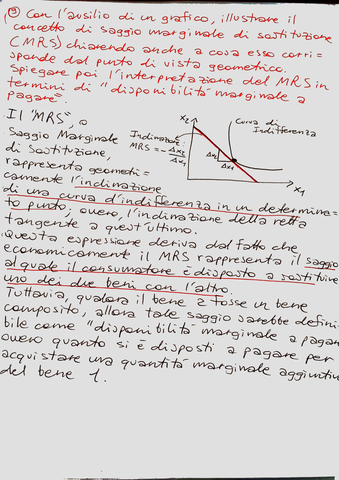 ③ Con l'ausilio di un grafico, illustrare il
concetto di saggio marginale di sostituzione
(MRS) chiarendo anche a cosa esso corri=
sponde dal punto di vista geometrico.
Spiegare poi l'interpretazione del MRS in
termini di "disponibilità marginale a
pagare".
Il "MRS", o
Saggio Marginale
di Sostituzione,
rappresenta geometri=
camente l'inclinazione
di una curva d'indifferenza in un determina=
to punto, ovvero, l'inclinazione della retta
tangente a quest'ultimo.
Questa espressione deriva dal fatto che
economicamente il MRS rappresenta il saggio
al quale il consumatore è disposto a sostituire
uno dei due beni con l'altro.
Tuttavia, qualora il bene 2 fosse un bene
composito, allora tale saggio sarebbe defini=
bile come "disponibilità marginale a pagare"
ovvero quanto si è disposti a pagare per
acquistare una quantità marginale aggiuntiva
del bene 1.
Inclinazione:
MRS = - Δx2/Δx1
x2
Curva di
Indifferenza
Δx2
Δx1
x1